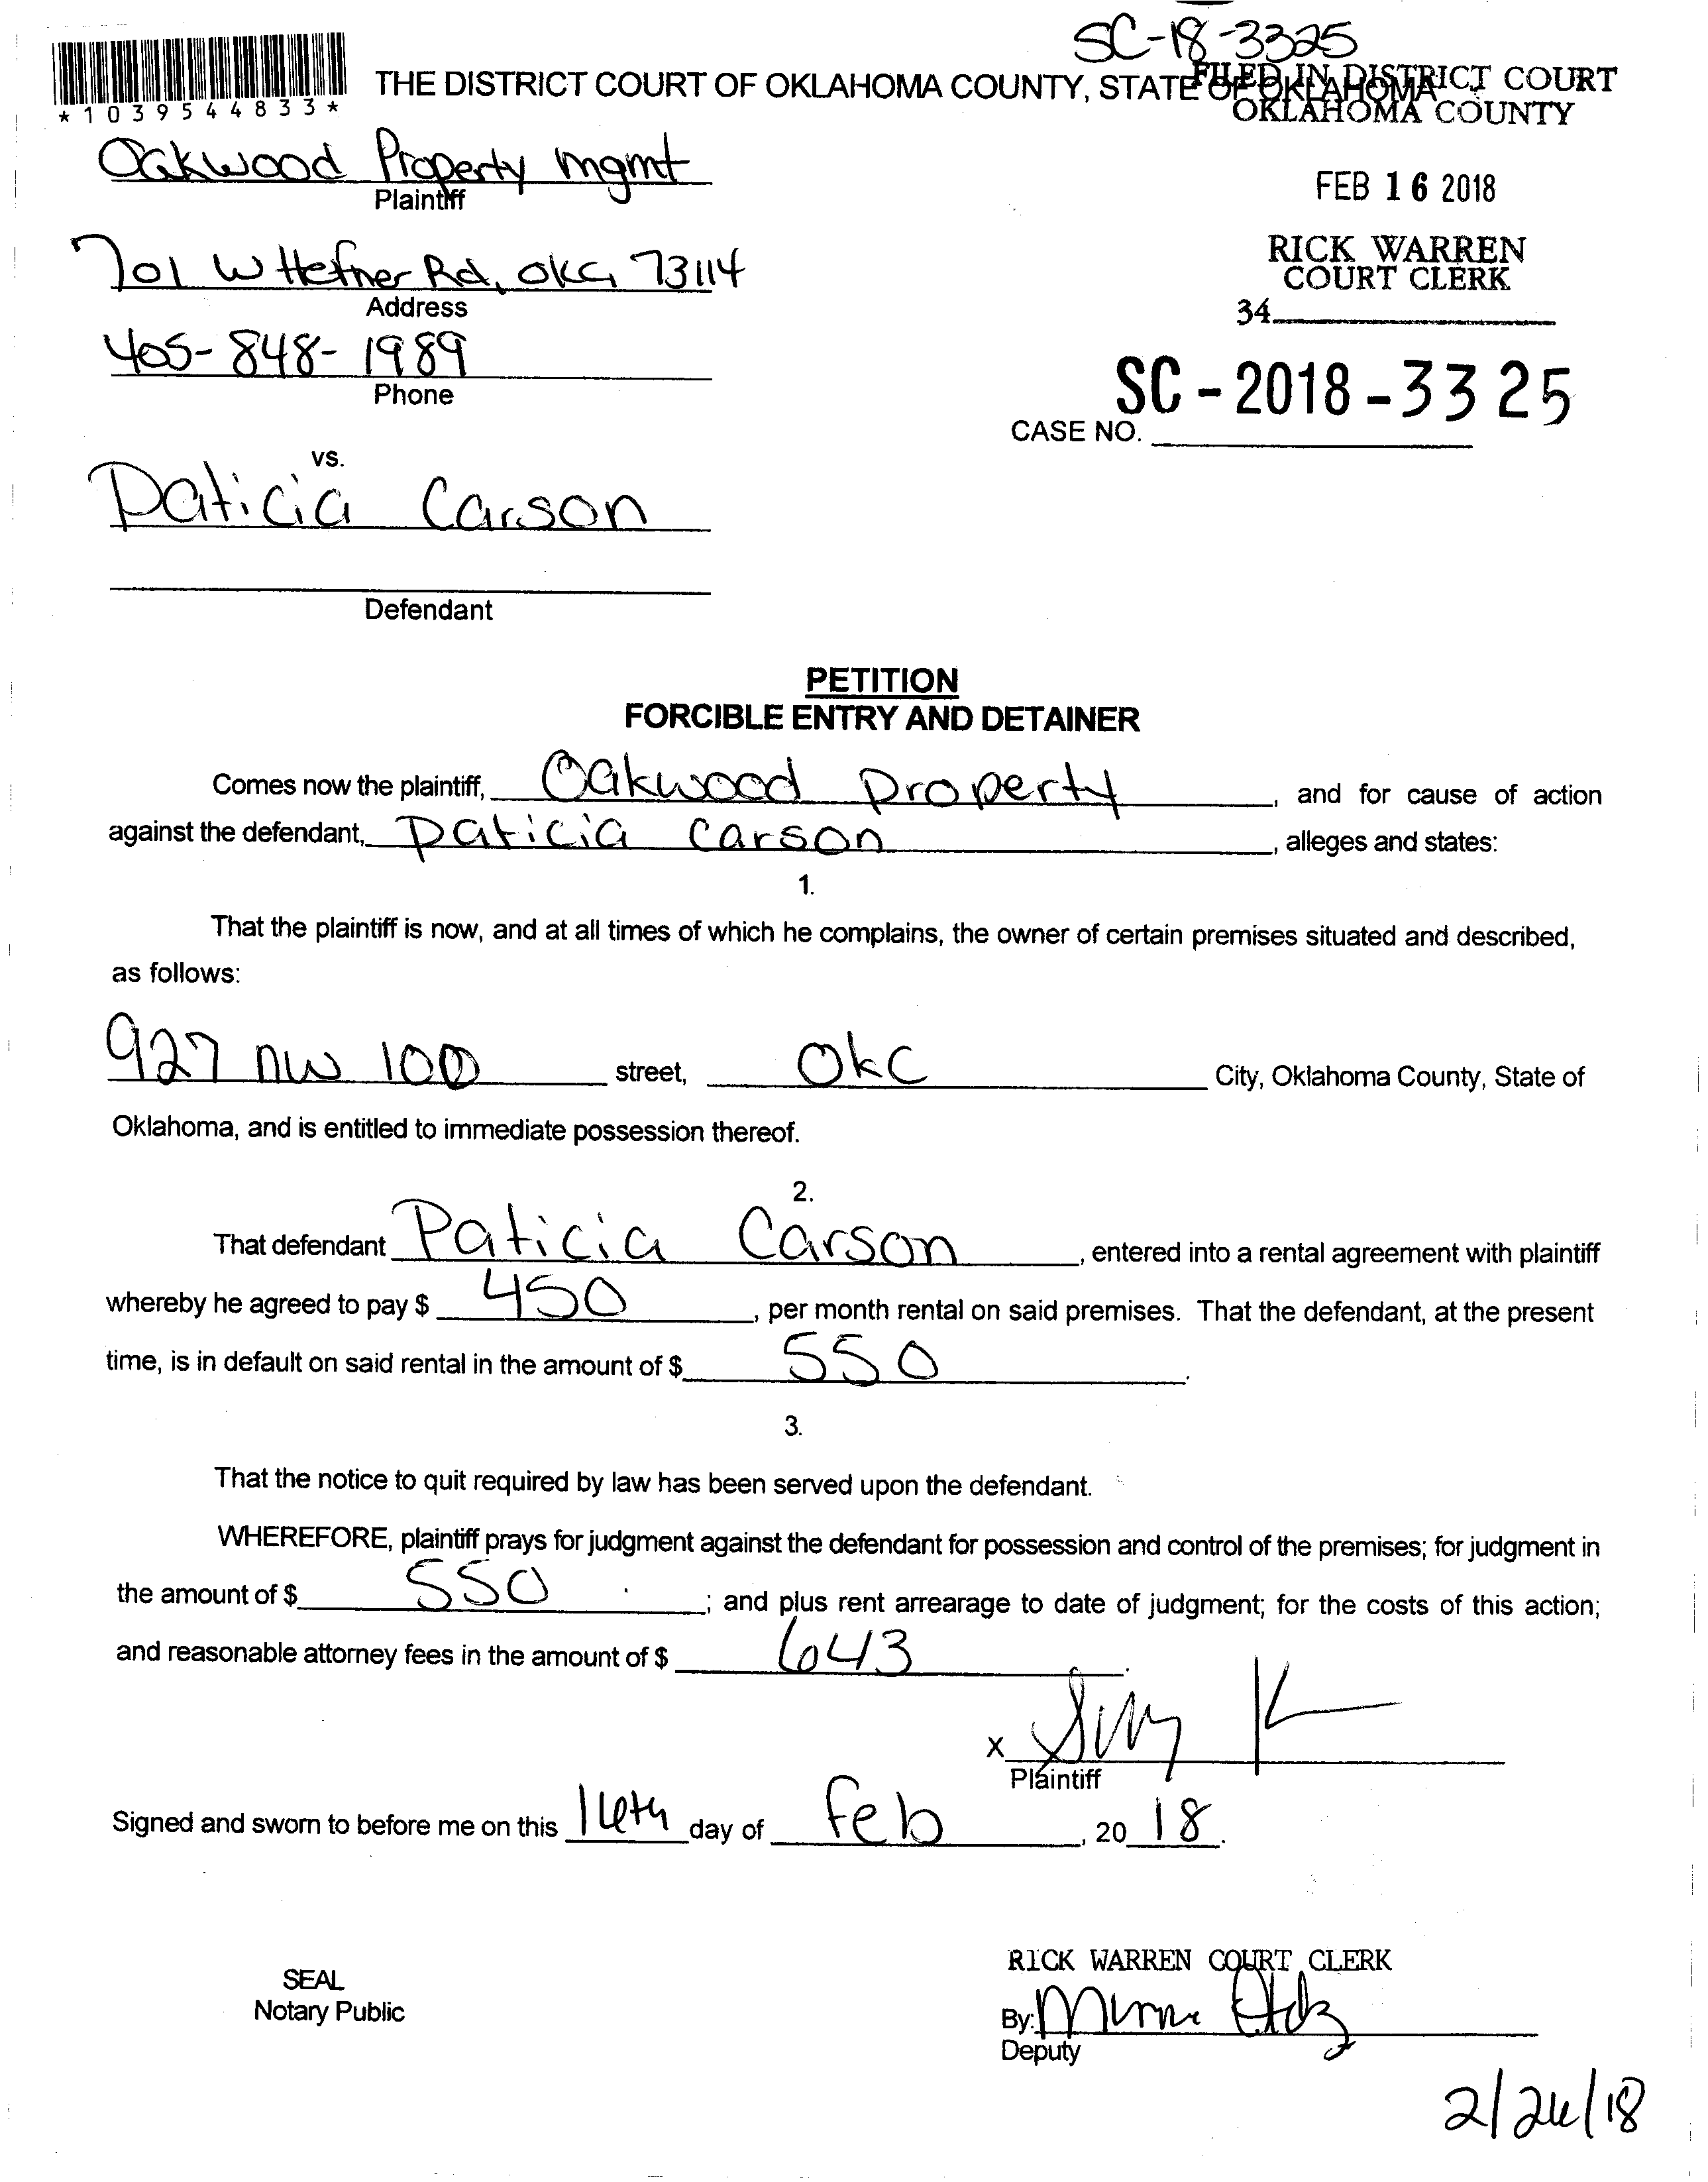 SC-18-3325
THE DISTRICT COURT OF OKLAHOMA COUNTY, STATE OF OKLAHOMA
FILED IN DISTRICT COURT
OKLAHOMA COUNTY
*1039544833*
Oakwood Property mgmt
Plaintiff
FEB 16 2018
701 W Hefner Rd, OKC, 73114
Address
RICK WARREN
COURT CLERK
34
405-848-1989
Phone
SC-2018-3325
CASE NO.
vs.
Paticia Carson
Defendant
PETITION
FORCIBLE ENTRY AND DETAINER
Comes now the plaintiff, Oakwood Property, and for cause of action
against the defendant, Paticia Carson, alleges and states:
1.
That the plaintiff is now, and at all times of which he complains, the owner of certain premises situated and described,
as follows:
927 NW 100 street, OKC City, Oklahoma County, State of
Oklahoma, and is entitled to immediate possession thereof.
2.
That defendant Paticia Carson, entered into a rental agreement with plaintiff
whereby he agreed to pay $ 450, per month rental on said premises. That the defendant, at the present
time, is in default on said rental in the amount of $ 550.
3.
That the notice to quit required by law has been served upon the defendant.
WHEREFORE, plaintiff prays for judgment against the defendant for possession and control of the premises; for judgment in
the amount of $ 550; and plus rent arrearage to date of judgment; for the costs of this action;
and reasonable attorney fees in the amount of $ 643.
X
Plaintiff
Signed and sworn to before me on this 16th day of Feb, 2018.
RICK WARREN COURT CLERK
SEAL
Notary Public
By:
Deputy
2/26/18